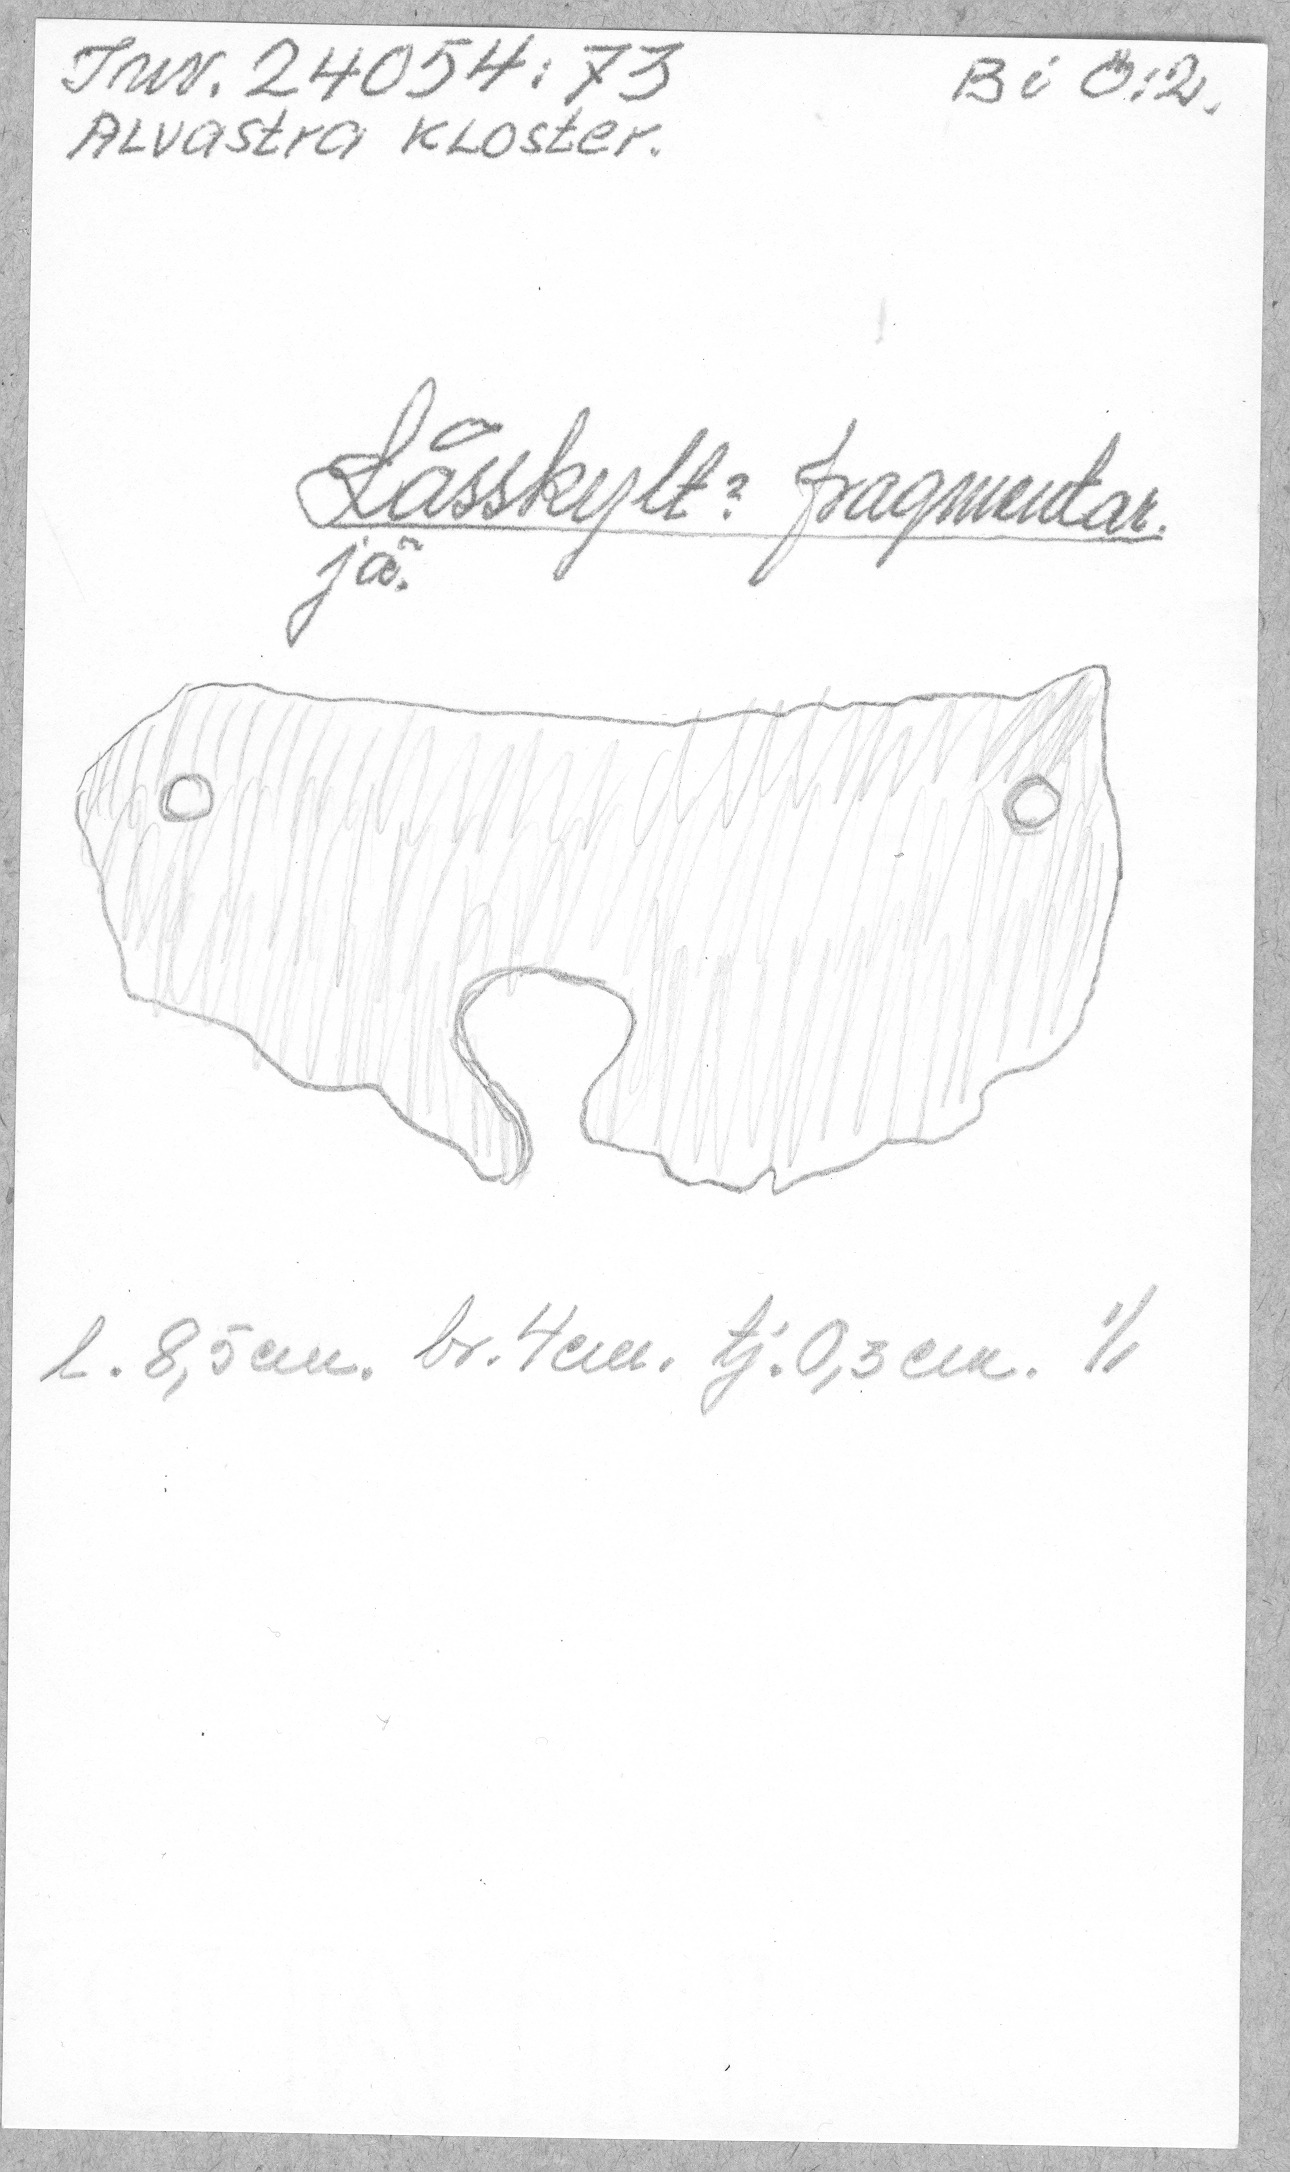 Inv. 24054:73 B i Ö:2.
Alvastra kloster.
Låsskylt? fragmentar.
jä.
l. 8,5 cm. br. 4 cm. tj. 0,3 cm. 1/1